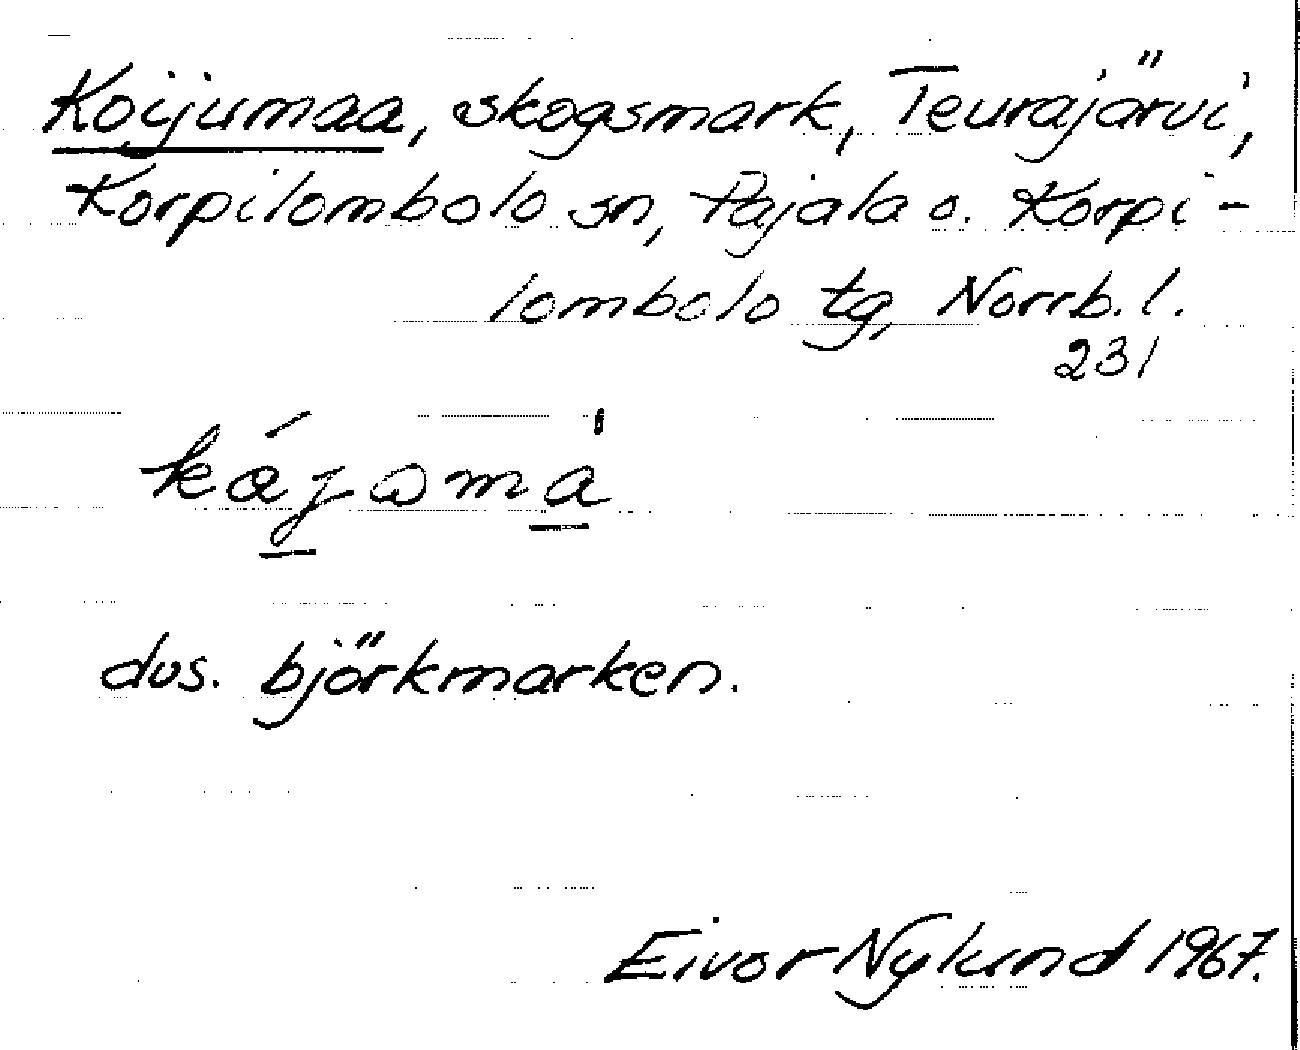 Koijumaa, skogsmark, Teurajärvi,
Korpilombolo sn, Pajala o. Korpi-
lombolo tg, Norrb. l.
231
dvs. björkmarken.
Eivor Nylund 1967.